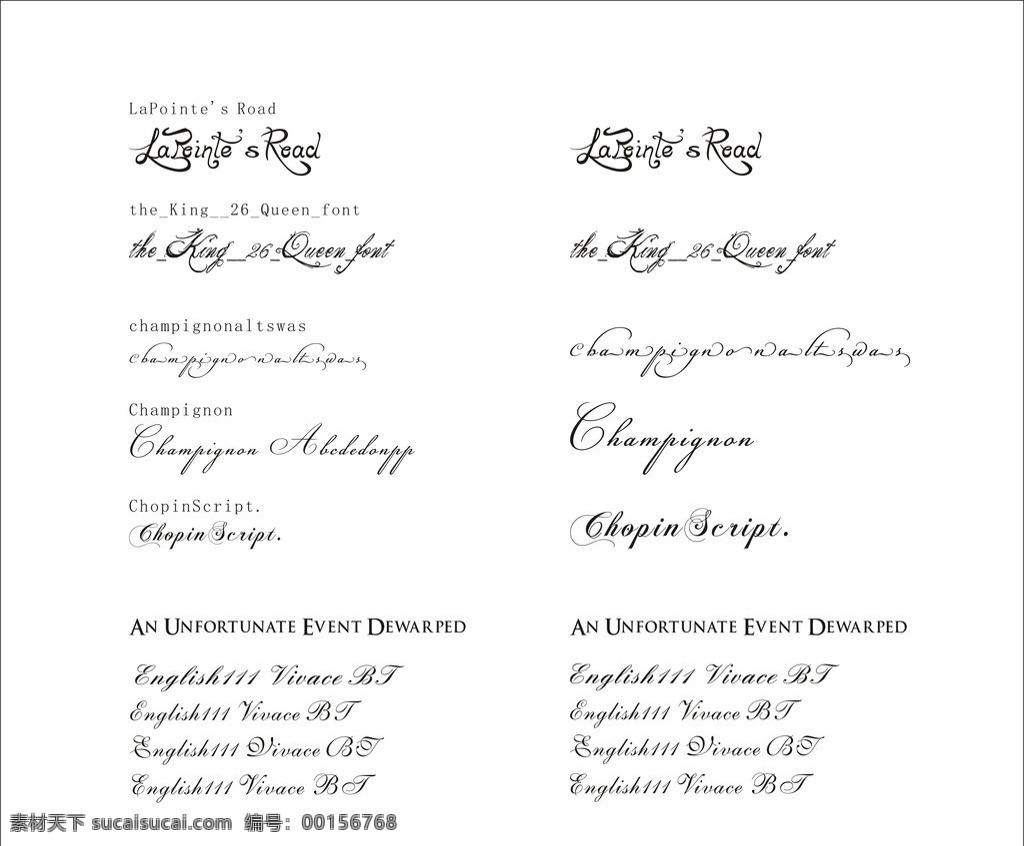 LaPointe's Road
LaPointe's Road LaPointe's Road
the_King__26_Queen_font
the_King__26_Queen_font the_King__26_Queen_font
champignonaltswas
champignonaltswas champignonaltswas
Champignon
Champignon Abcdedonpp Champignon
ChopinScript.
ChopinScript. ChopinScript.
AN UNFORTUNATE EVENT DEWARPED AN UNFORTUNATE EVENT DEWARPED
English111 Vivace BT English111 Vivace BT
English111 Vivace BT English111 Vivace BT
English111 Vivace BT English111 Vivace BT
English111 Vivace BT English111 Vivace BT
素材天下 sucaisucai.com 编号：00156768